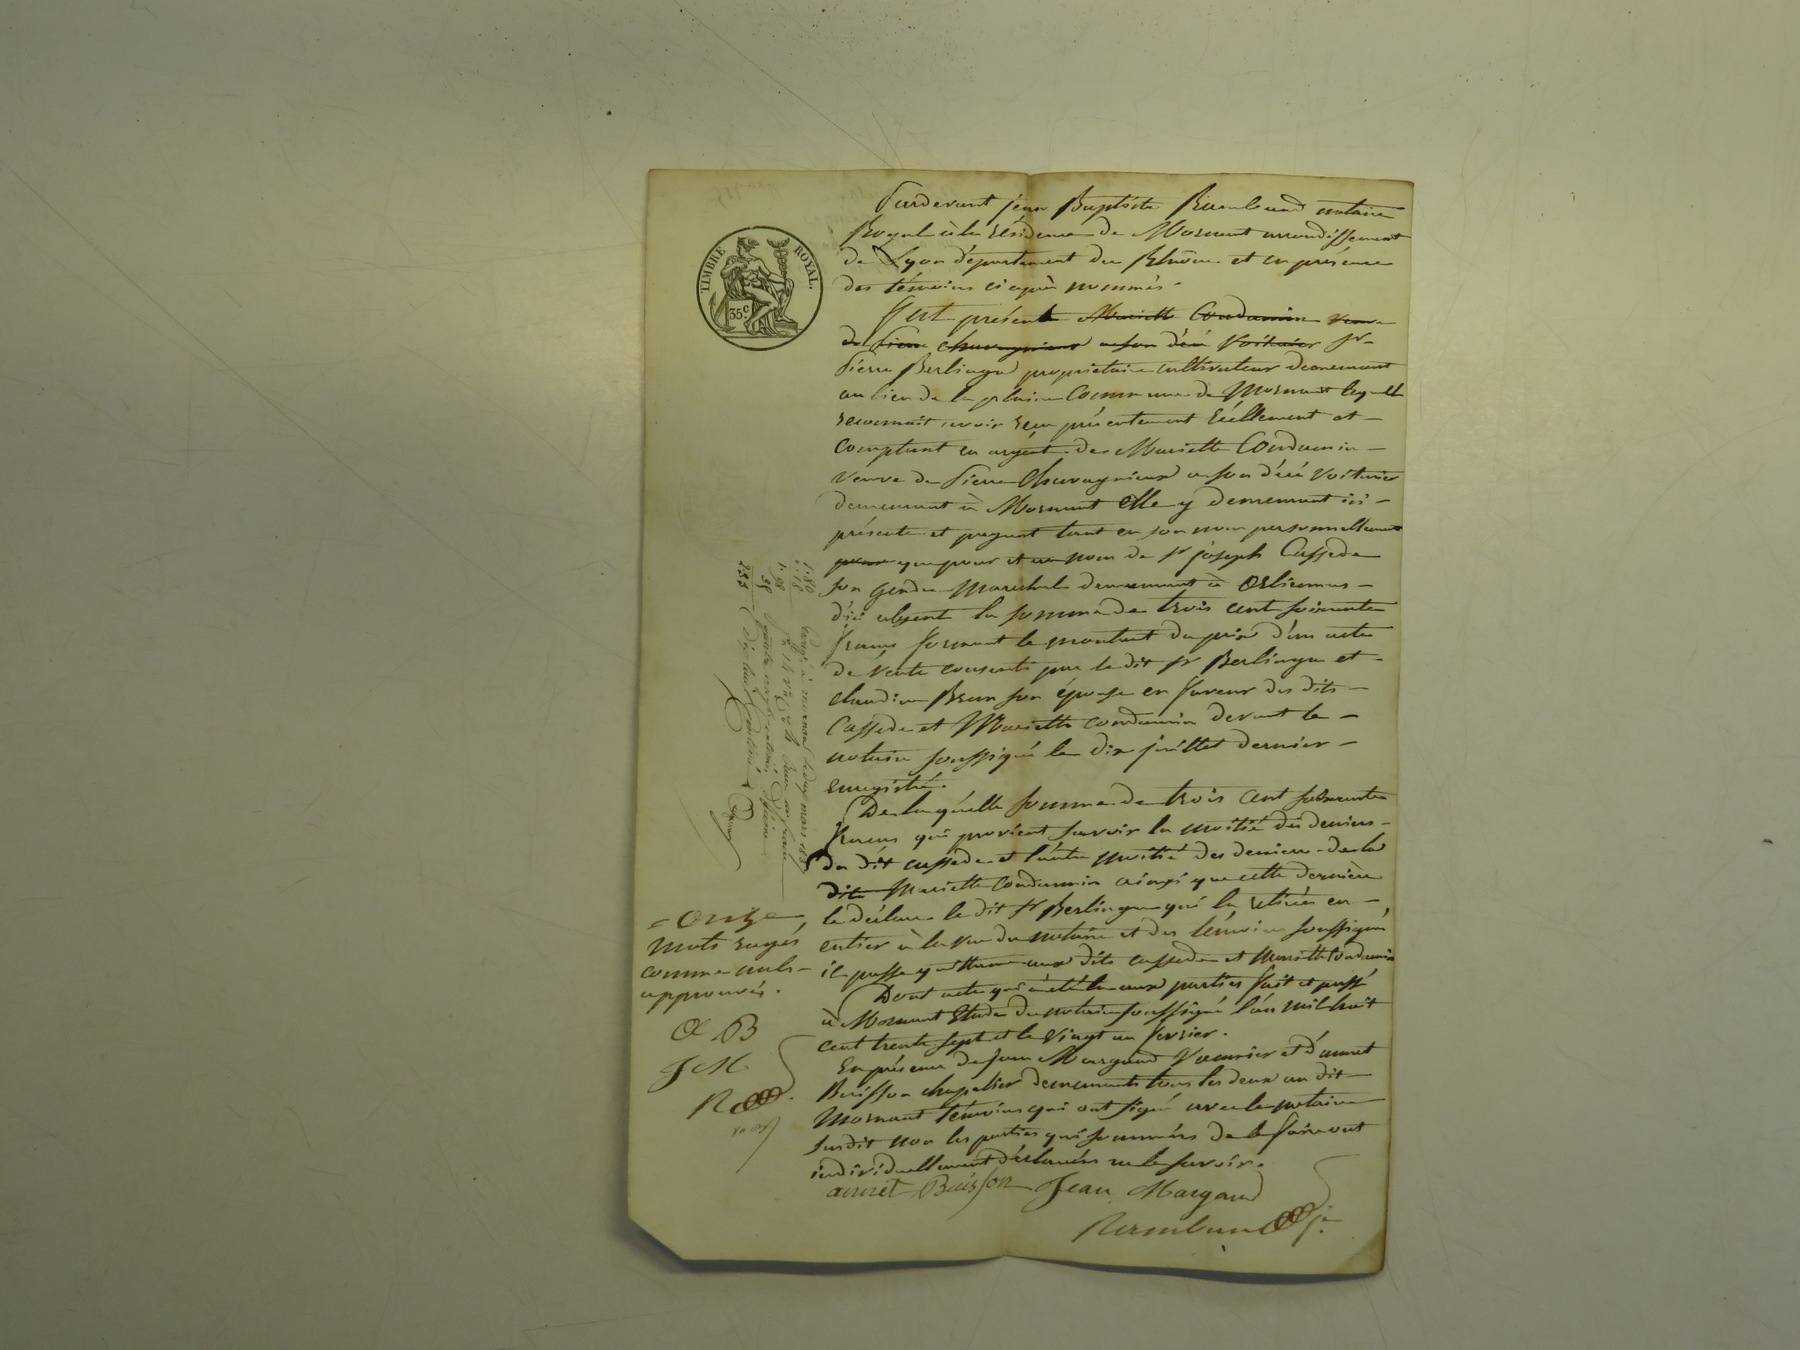 TIMBRE ROYAL.
35c
Pardevant jean Baptiste Rambaud notaire
Royal à la résidence de Mornant arrondissement
de Lyon département du Rhône et en présence
des témoins ci après nommés.
fut présent Mariette Condamin veuve
de Pierre Chavagnieux a son décé Voiturier Sr
Pierre Berlingu propriétaire cultivateur demeurant
au lieu de la plaine Commune de Mornant lequel
reconnait avoir reçu présentement réellement et
comptant en argent de Mariette Condamin
veuve de Pierre Chavagnieux a son décé voiturier
demeurant à Mornant elle y demeurant ici
présente et payant tant en son nom personnellement
pour que pour et au nom de Sr joseph Cassede
son gendre Marechal demeurant à Orliennas
d'ici absent la somme de trois cent soixante
francs formant le montant du prix d'un acte
de vente consenti par le dit Sr Berlingu et
claudine Brun son épouse en faveur des dits
Cassede et Mariette condamin devant le
notaire soussigné le dix juillet dernier
enregistré.
De laquelle somme de trois cent soixante
francs qui provient savoir la moitié des deniers
du dit cassede et l'autre moitié des deniers de la
dite Mariette Condamin ainsi que cette dernière
le déclare le dit Sr Berlingu qui la retirée en
entier à la vue du notaire et des témoins soussignés
il passe quittance aux dits cassede et Mariette Condamin
Dont acte qui a été lu aux parties fait et passé
à Mornant Etude du notaire soussigné l'an mil huit
cent trente sept et le vingt un fevrier.
En présence de Jean Margand et d'annet
Buisson chapelier demeurants tous les deux au dit
Mornant témoins qui ont signé avec le notaire
susdit non les parties qui sommées de le faire ont
individuellement déclarées ne le savoir.
annet Buisson Jean Margand
Rambaud
onze
mots rayés
comme nuls
approuvés.
a B
J M
R
1.80
18
1.98
35
2.33
à mornant mars